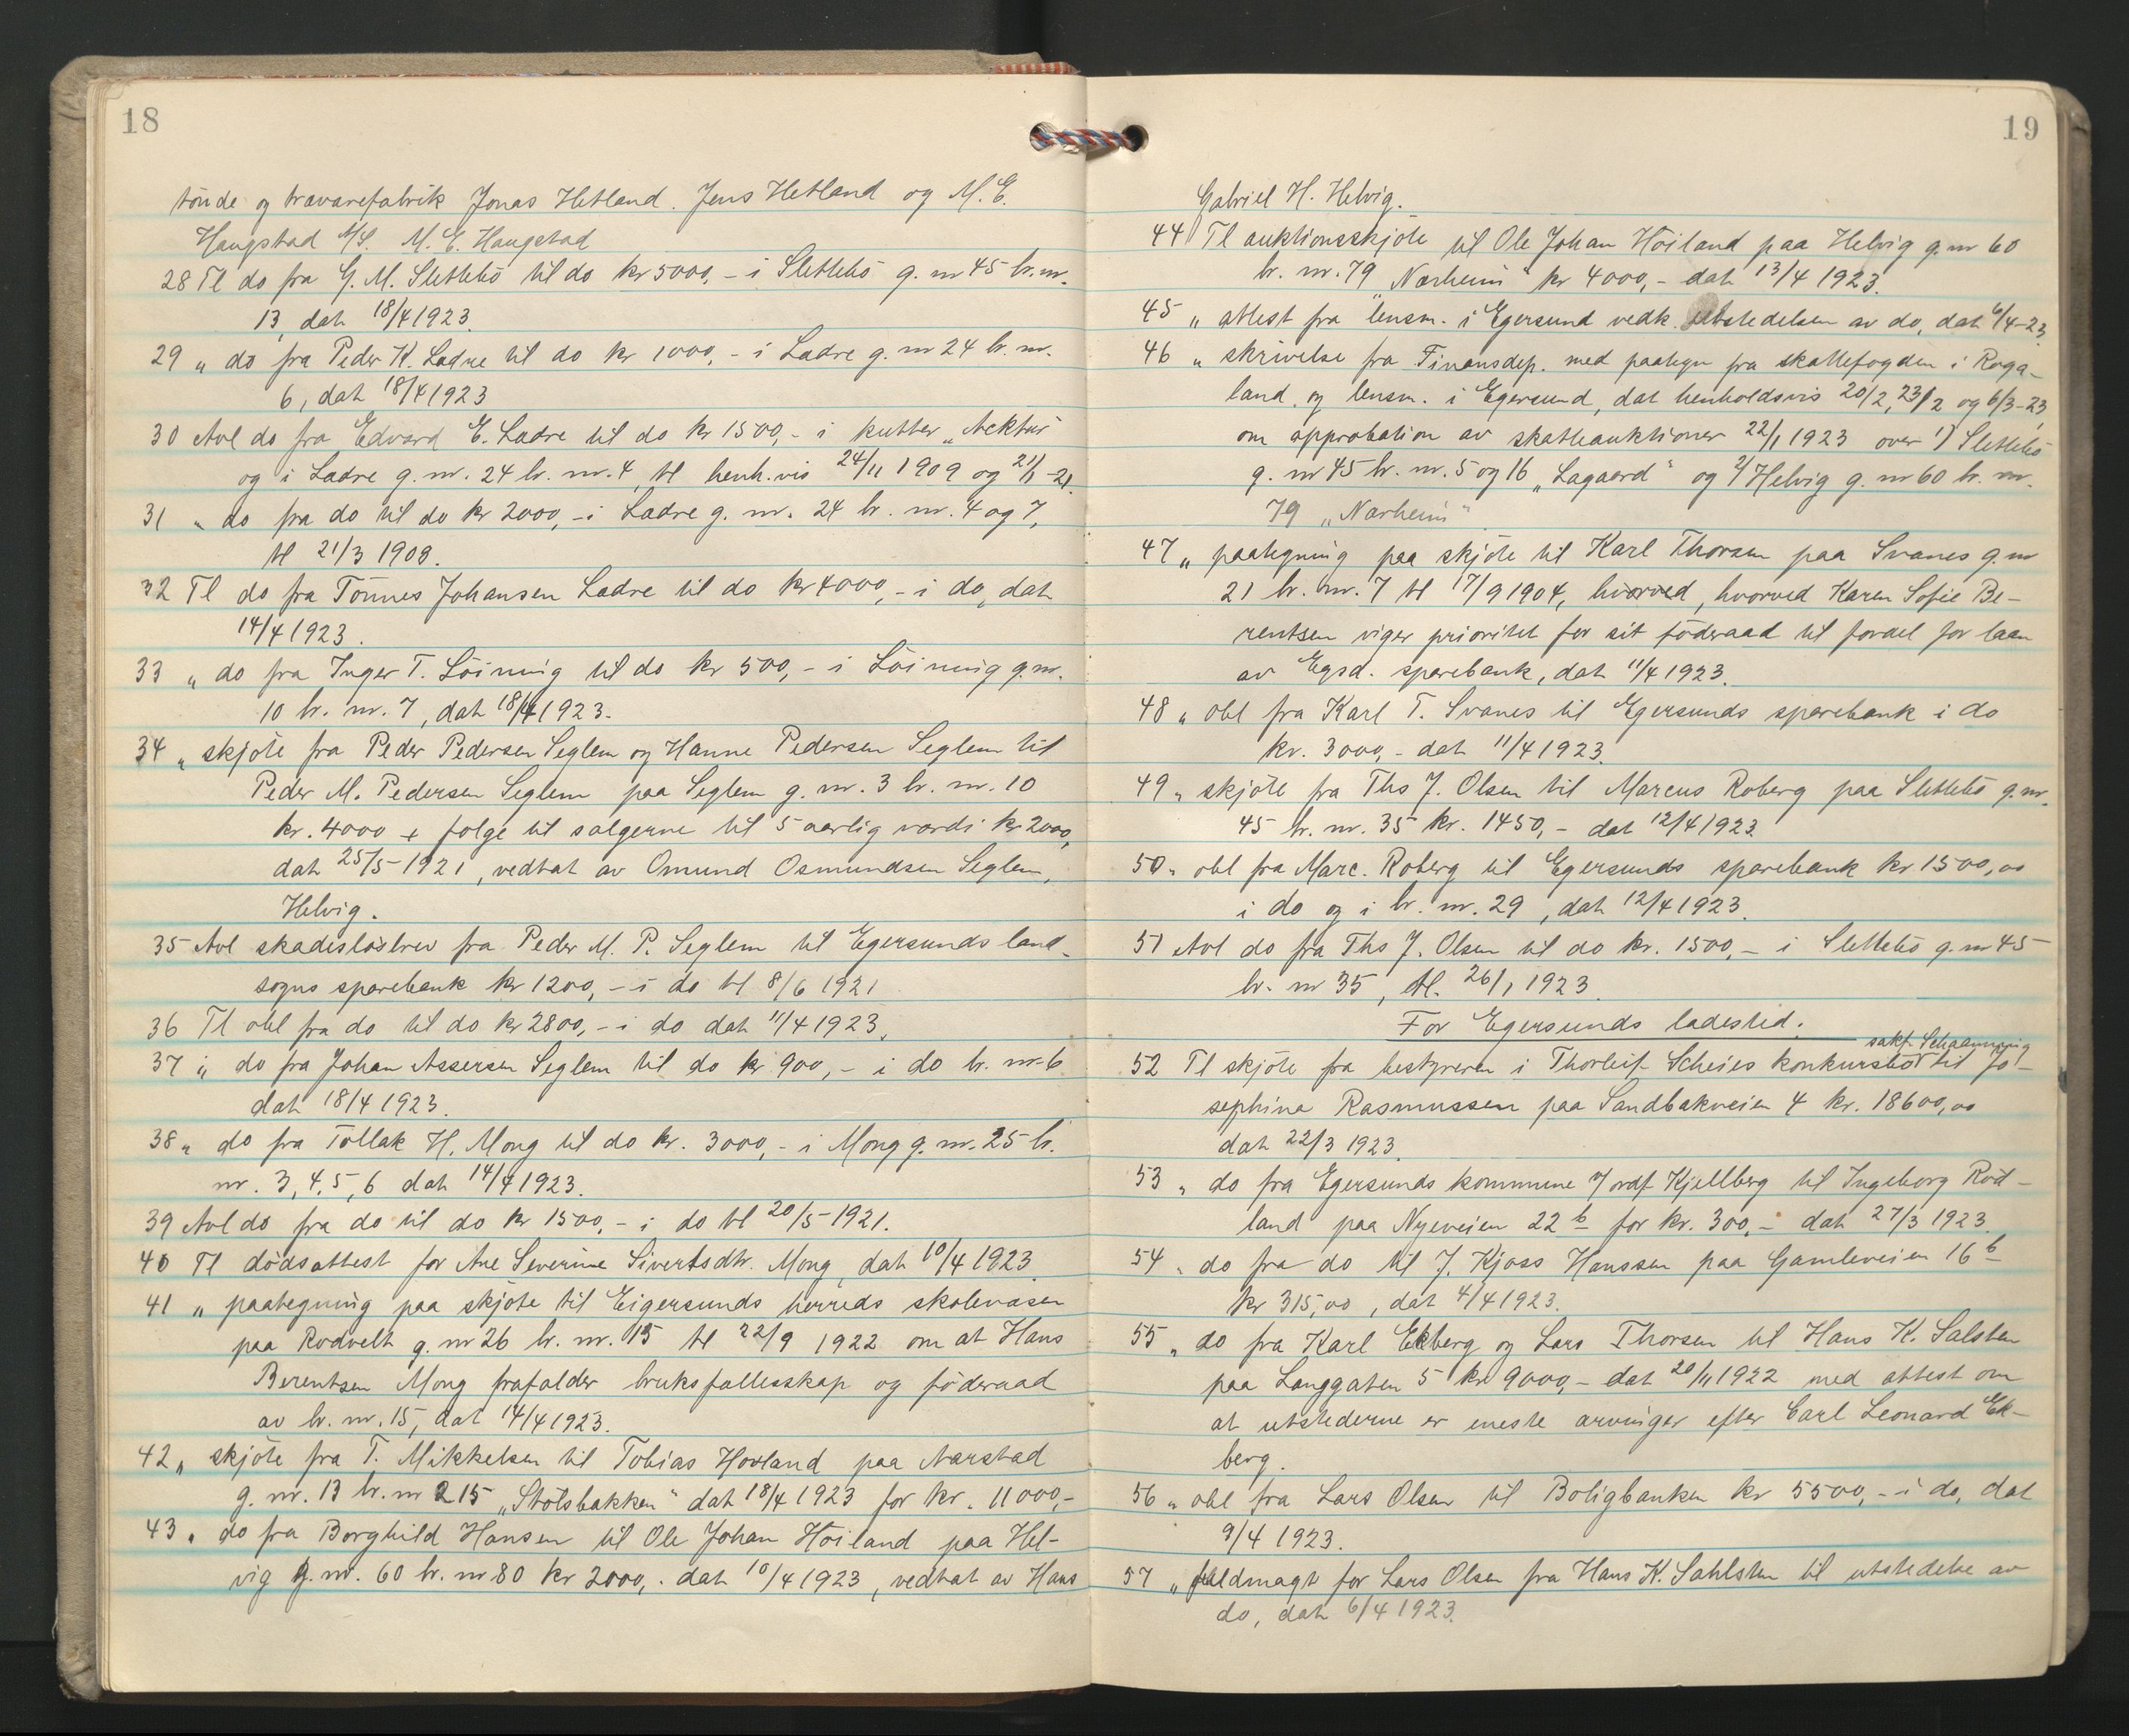 18
tönde og trævarefabrik Jonas Hetland. Jens Hetland og M. E.
Haugstad A/S. M. E. Haugstad
28 Tl do fra G. M. Slettebö til do kr 5000,- i Slettebö g. nr 45 br. nr.
13, dat 18/4 1923.
29 „ do fra Peder K. Ladre til do kr 1000,- i Ladre g. nr 24 br. nr.
6, dat 18/4 1923
30 Avl do fra Edvard E. Ladre til do kr 1500,- i kutter „Nektar"
og i Ladre g. nr. 24 br. nr. 4, tl henh.vis 24/11 1909 og 21/1-21.
31 „ do fra do til do kr 2000,- i Ladre g. nr. 24 br. nr. 4 og 7,
tl 21/3 1908.
32 Tl do fra Tönnes Johansen Ladre til do kr 4000,- i do, dat
14/4 1923.
33 „ do fra Inger T. Löining til do kr 500,- i Löining g. nr.
10 br. nr. 7, dat 18/4 1923.
34 „ skjöte fra Peder Pedersen Seglem og Hanne Pedersen Seglem til
Peder M. Pedersen Seglem paa Seglem g. nr. 3 br. nr. 10
kr. 4000 + følge til sælgerne til 5 aarlig værdi kr 2000,
dat 25/5-1921, vedtat av Omund Osmundsen Seglem,
Helvig.
35 Avl skadeslösbrev fra Peder M. P. Seglem til Egersunds land-
sogns sparebank kr 1200,- i do tl 8/6 1921
36 Tl obl fra do til do kr 2800,- i do dat 11/4 1923.
37 „ do fra Johan Assersen Seglem til do kr 900,- i do br. nr. 6
dat 18/4 1923.
38 „ do fra Tollak H. Mong til do kr. 3000,- i Mong g. nr. 25 br.
nr. 3, 4, 5, 6 dat 14/4 1923.
39 Avl do fra do til do kr 1500,- i do tl 20/5-1921.
40 Tl dödsattest for Ane Severine Sivertsdtr. Mong, dat 10/4 1923.
41 „ paategning paa skjöte til Eigersunds herreds skolevæsen
paa Rodvelt g. nr 26 br. nr. 15 tl 22/9 1922 om at Hans
Berentsen Mong frafalder bruksfællesskap og föderaad
av br. nr. 15, dat 14/4 1923.
42 „ skjöte fra T. Mikkelsen til Tobias Hovland paa Aarstad
g. nr. 13 br. nr 215 „Stölsbakken" dat 18/4 1923 for kr. 11000,-
43 „ do fra Borghild Hansen til Ole Johan Höiland paa Hel-
vig g. nr. 60 br. nr 80 kr 2000,- dat 10/4 1923, vedtat av Hans
19
Gabriel H. Helvig.
44 Tl auktionsskjöte til Ole Johan Höiland paa Helvig g. nr 60
br. nr. 79 „Nærheim" kr 4000,- dat 13/4 1923.
45 „ attest fra lensm. i Egersund vedk. utstedelsen av do, dat 6/4-23.
46 „ skrivelse fra Finansdep. med paategn fra skattefogden i Roga-
land og lensm. i Egersund, dat henholdsvis 20/2, 23/2 og 6/3-23,
om approbation av skatteauktioner 22/1 1923 over 1) Slettebö
g. nr 45 br. nr. 5 og 16 „Lagaard" og 2) Helvig g. nr 60 br. nr.
79 „Nærheim"
47 „ paategning paa skjöte til Karl Thorsen paa Svanes g. nr
21 br. nr. 7 tl 17/9 1904, hvorved, hvorved Karen Sofie Be-
rentsen viger prioritet for sit föderaad til fordel for laan
av Egsd. sparebank, dat 11/4 1923.
48 „ obl fra Karl T. Svanes til Egersunds sparebank i do
kr. 3000,- dat 11/4 1923.
49 „ skjöte fra Ths J. Olsen til Marcus Roberg paa Slettebö g. nr.
45 br. nr. 35 kr. 1450,- dat 12/4 1923.
50 „ obl fra Marc. Roberg til Egersunds sparebank kr 1500,00
i do og i br. nr. 29, dat 12/4 1923.
51 Avl do fra Ths J. Olsen til do kr. 1500,- i Slettebö g. nr 45
br. nr 35, tl. 26/1 1923.
For Egersunds ladested.
sakf. Schaanning
52 Tl skjöte fra bestyreren i Thorleif Scheies konkursbo til Jo-
sephina Rasmussen paa Sandbakveien 4 kr. 18600,00
dat 22/3 1923.
53 „ do fra Egersunds kommune v/ ordf Kjellberg til Ingeborg Röd-
land paa Nyeveien 22 b for kr. 300,- dat 27/3 1923.
54 „ do fra do til J. Kjoss Hanssen paa Gamleveien 16 b
kr 315,00, dat 4/4 1923.
55 „ do fra Karl Ekberg og Lars Thorsen til Hans K. Salsten
paa Langgaten 5 kr 9000,- dat 20/11 1922 med attest om
at utstederne er eneste arvinger efter Carl Leonard Ek-
berg.
56 „ obl fra Lars Olsen til Boligbanken kr 5500,- i do, dat
9/4 1923.
57 „ fuldmagt for Lars Olsen fra Hans K. Sahlsten til utstedelse av
do, dat 6/4 1923.